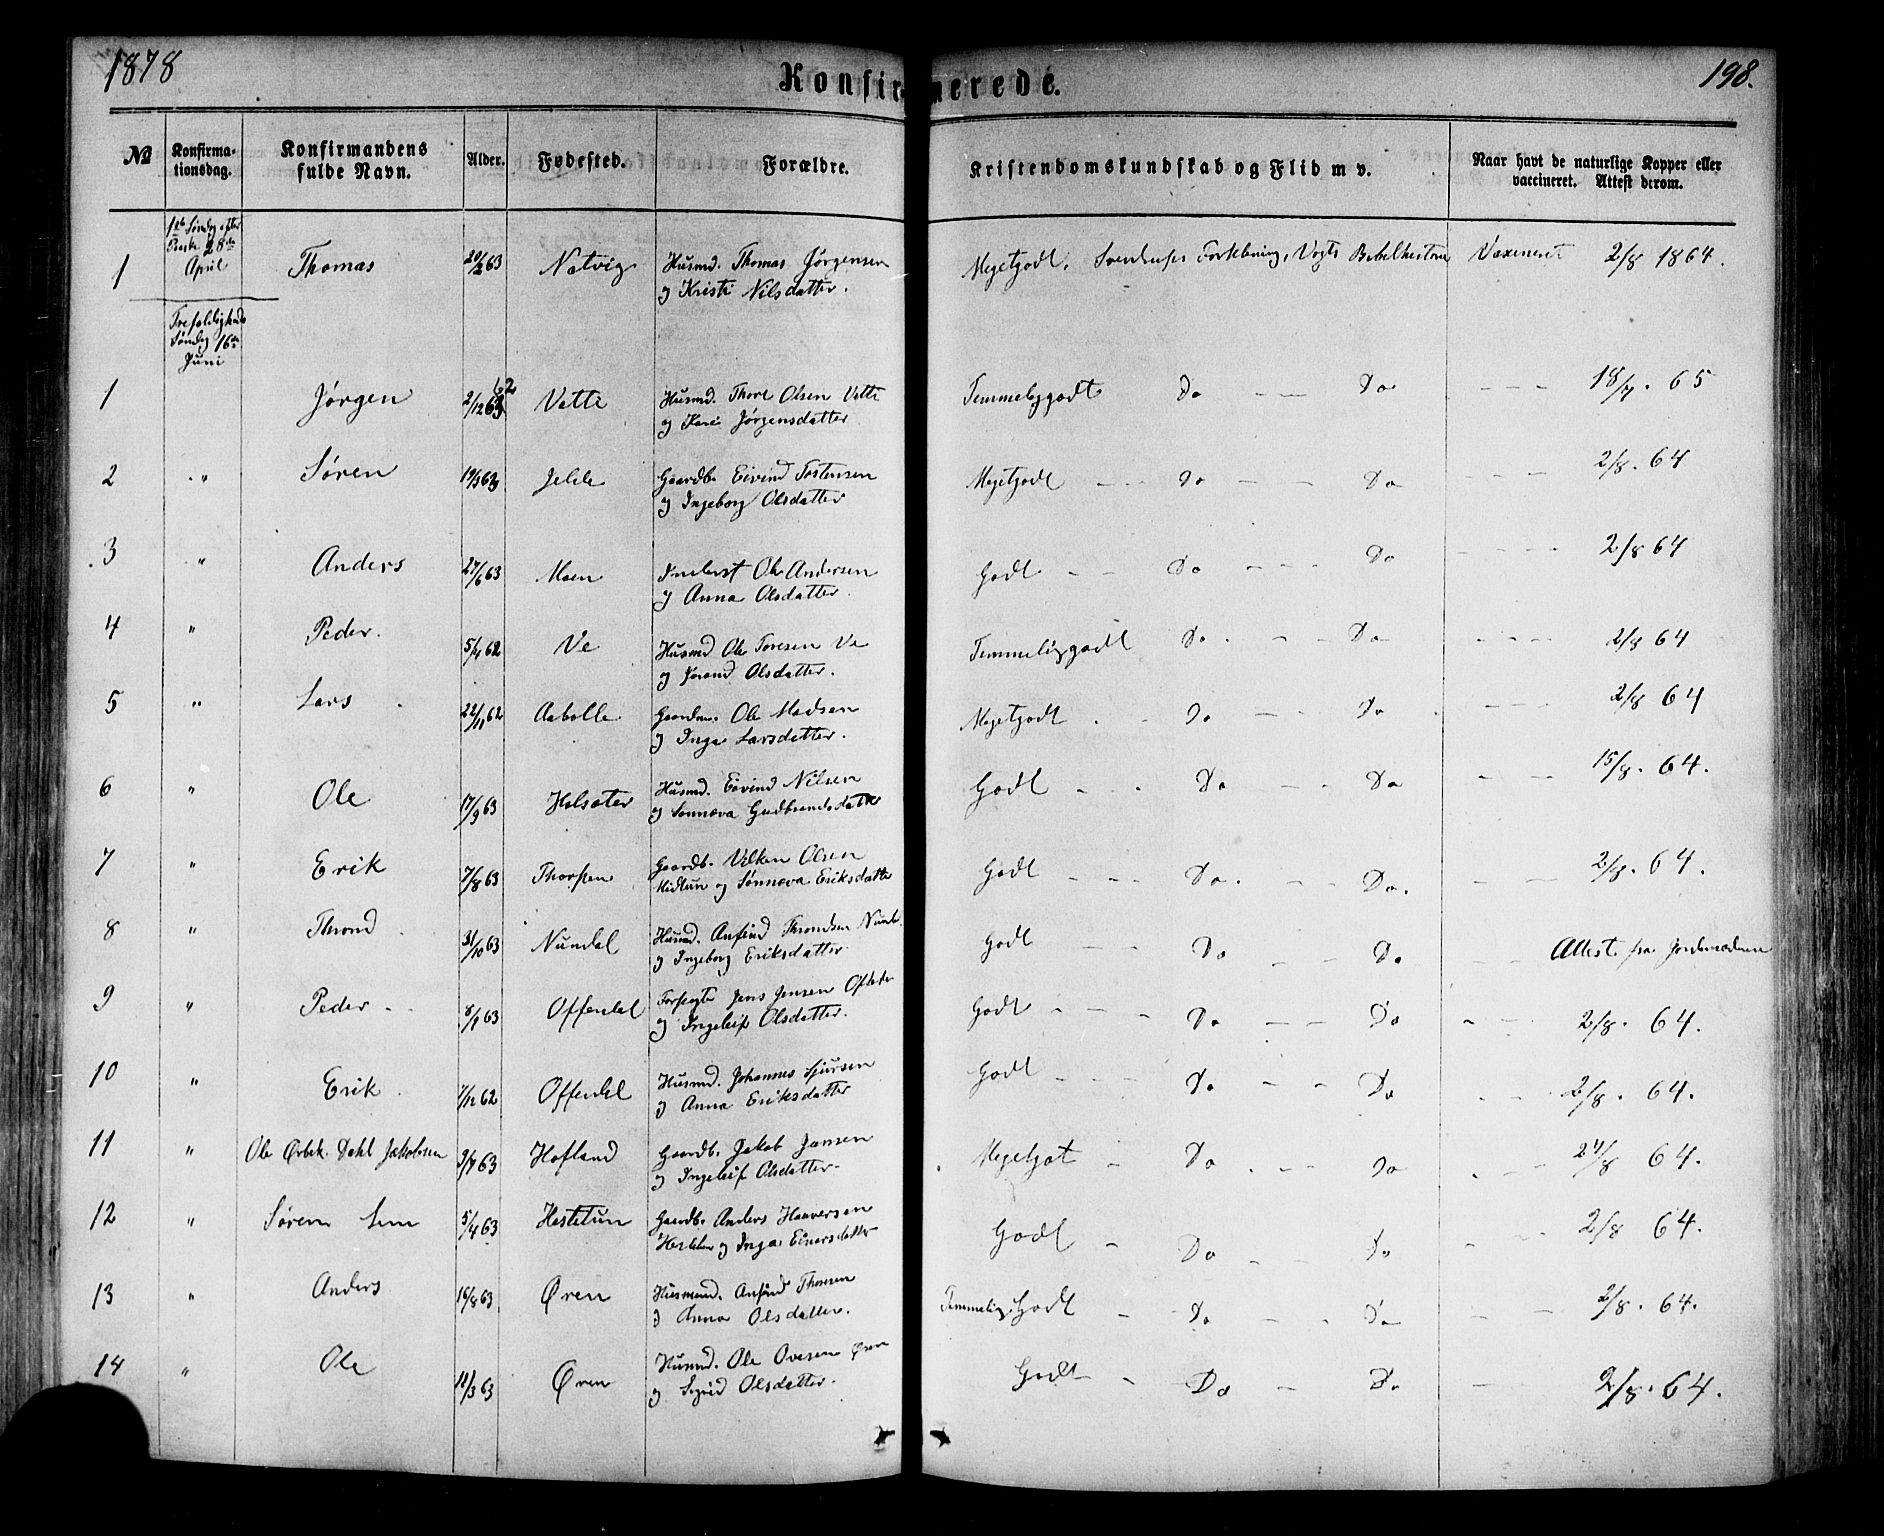 1878
Konfirmerede.
198.
No
Konfirma-
tionsdag.
Konfirmandens
fulde Navn.
Alder.
Fødested.
Forældre.
Kristendomskundskab og Flid m v.
Naar havt de naturlige Kopper eller
vaccineret. Attest derom.
1 1ste Søndag efter Paaske 28de April Thomas 20/2 63 Natvig Husmd. Thomas Jørgensen
og Kristi Nilsdatter. Megetgodt. Forklaring, Vogts Bibelhistorie Vaxineret 2/8 1864.
Trefoldigheds
Søndag 16de
Juni
1 Jørgen 2/12 62 Vetti Husmd. Thore Olsen Vetti
og Kari Jørgensdatter Temmeliggodt Do Do 18/7. 65
2 " Søren 19/3 63 Jelde Gaardb. Eivind Tostensen
og Ingeborg Olsdatter Megetgodt Do Do 2/8. 64
3 " Anders 27/6 63 Moen Inderst Ole Andersen
og Anna Olsdatter Godt Do Do 2/8 64
4 " Peder. 5/4 62 Ve Husmd Ole Toresen Ve
og Jorand Olsdatter. Temmeliggodt Do Do 2/8 64
5 " Lars 22/11 62 Aabolle Gaardm. Ole Madsen
og Inga Larsdatter. Megetgodt Do Do 2/8 64
6 " Ole 17/9 63 Holsæter Husmd. Eivind Nilsen
og Sønneva Gudbrandsdatter Godt Do Do 15/8. 64.
7 " Erik 7/8 63 Thorpen Gaardb. Vilken Olsen
Midtun og Sønneva Eriksdatter Godt Do. Do. 2/8. 64.
8 " Thrond 31/10 63 Nundal Husmd. Anfind Throndsen
og Ingeborg Eriksdatter Godt Do Do Attest fra Jordemoderen
9 " Peder 8/1 63 Offerdal Jens Jensen
og Ingeleif Olsdatter. Godt Do Do 2/8. 64.
10 " Erik 7/12 62 Offerdal Husmd. Johannes Sjursen
og Anna Eriksdatter Godt Do Do 2/8. 64.
11 " Ole Ørbek Dahl Jakobsen 9/7 63 Hofland Gaardb. Jakob Jansen
og Ingeleif Olsdatter Megetgot Do Do 24/8 64.
12 " Søren Lem 5/4 63 Hestetun Gaardb. Anders Haaversen
og Inga Einersdatter Godt Do Do 2/8 64.
13 " Anders 16/8 63 Øren Husmand. Anfind Thoresen
og Anna Olsdatter. Temmelig Godt Do Do 2/8. 64.
14 " Ole 11/3 63 Øren Husmd. Ole Ovesen Øren
og Sigrid Olsdatter. Godt Do Do 2/8. 64.